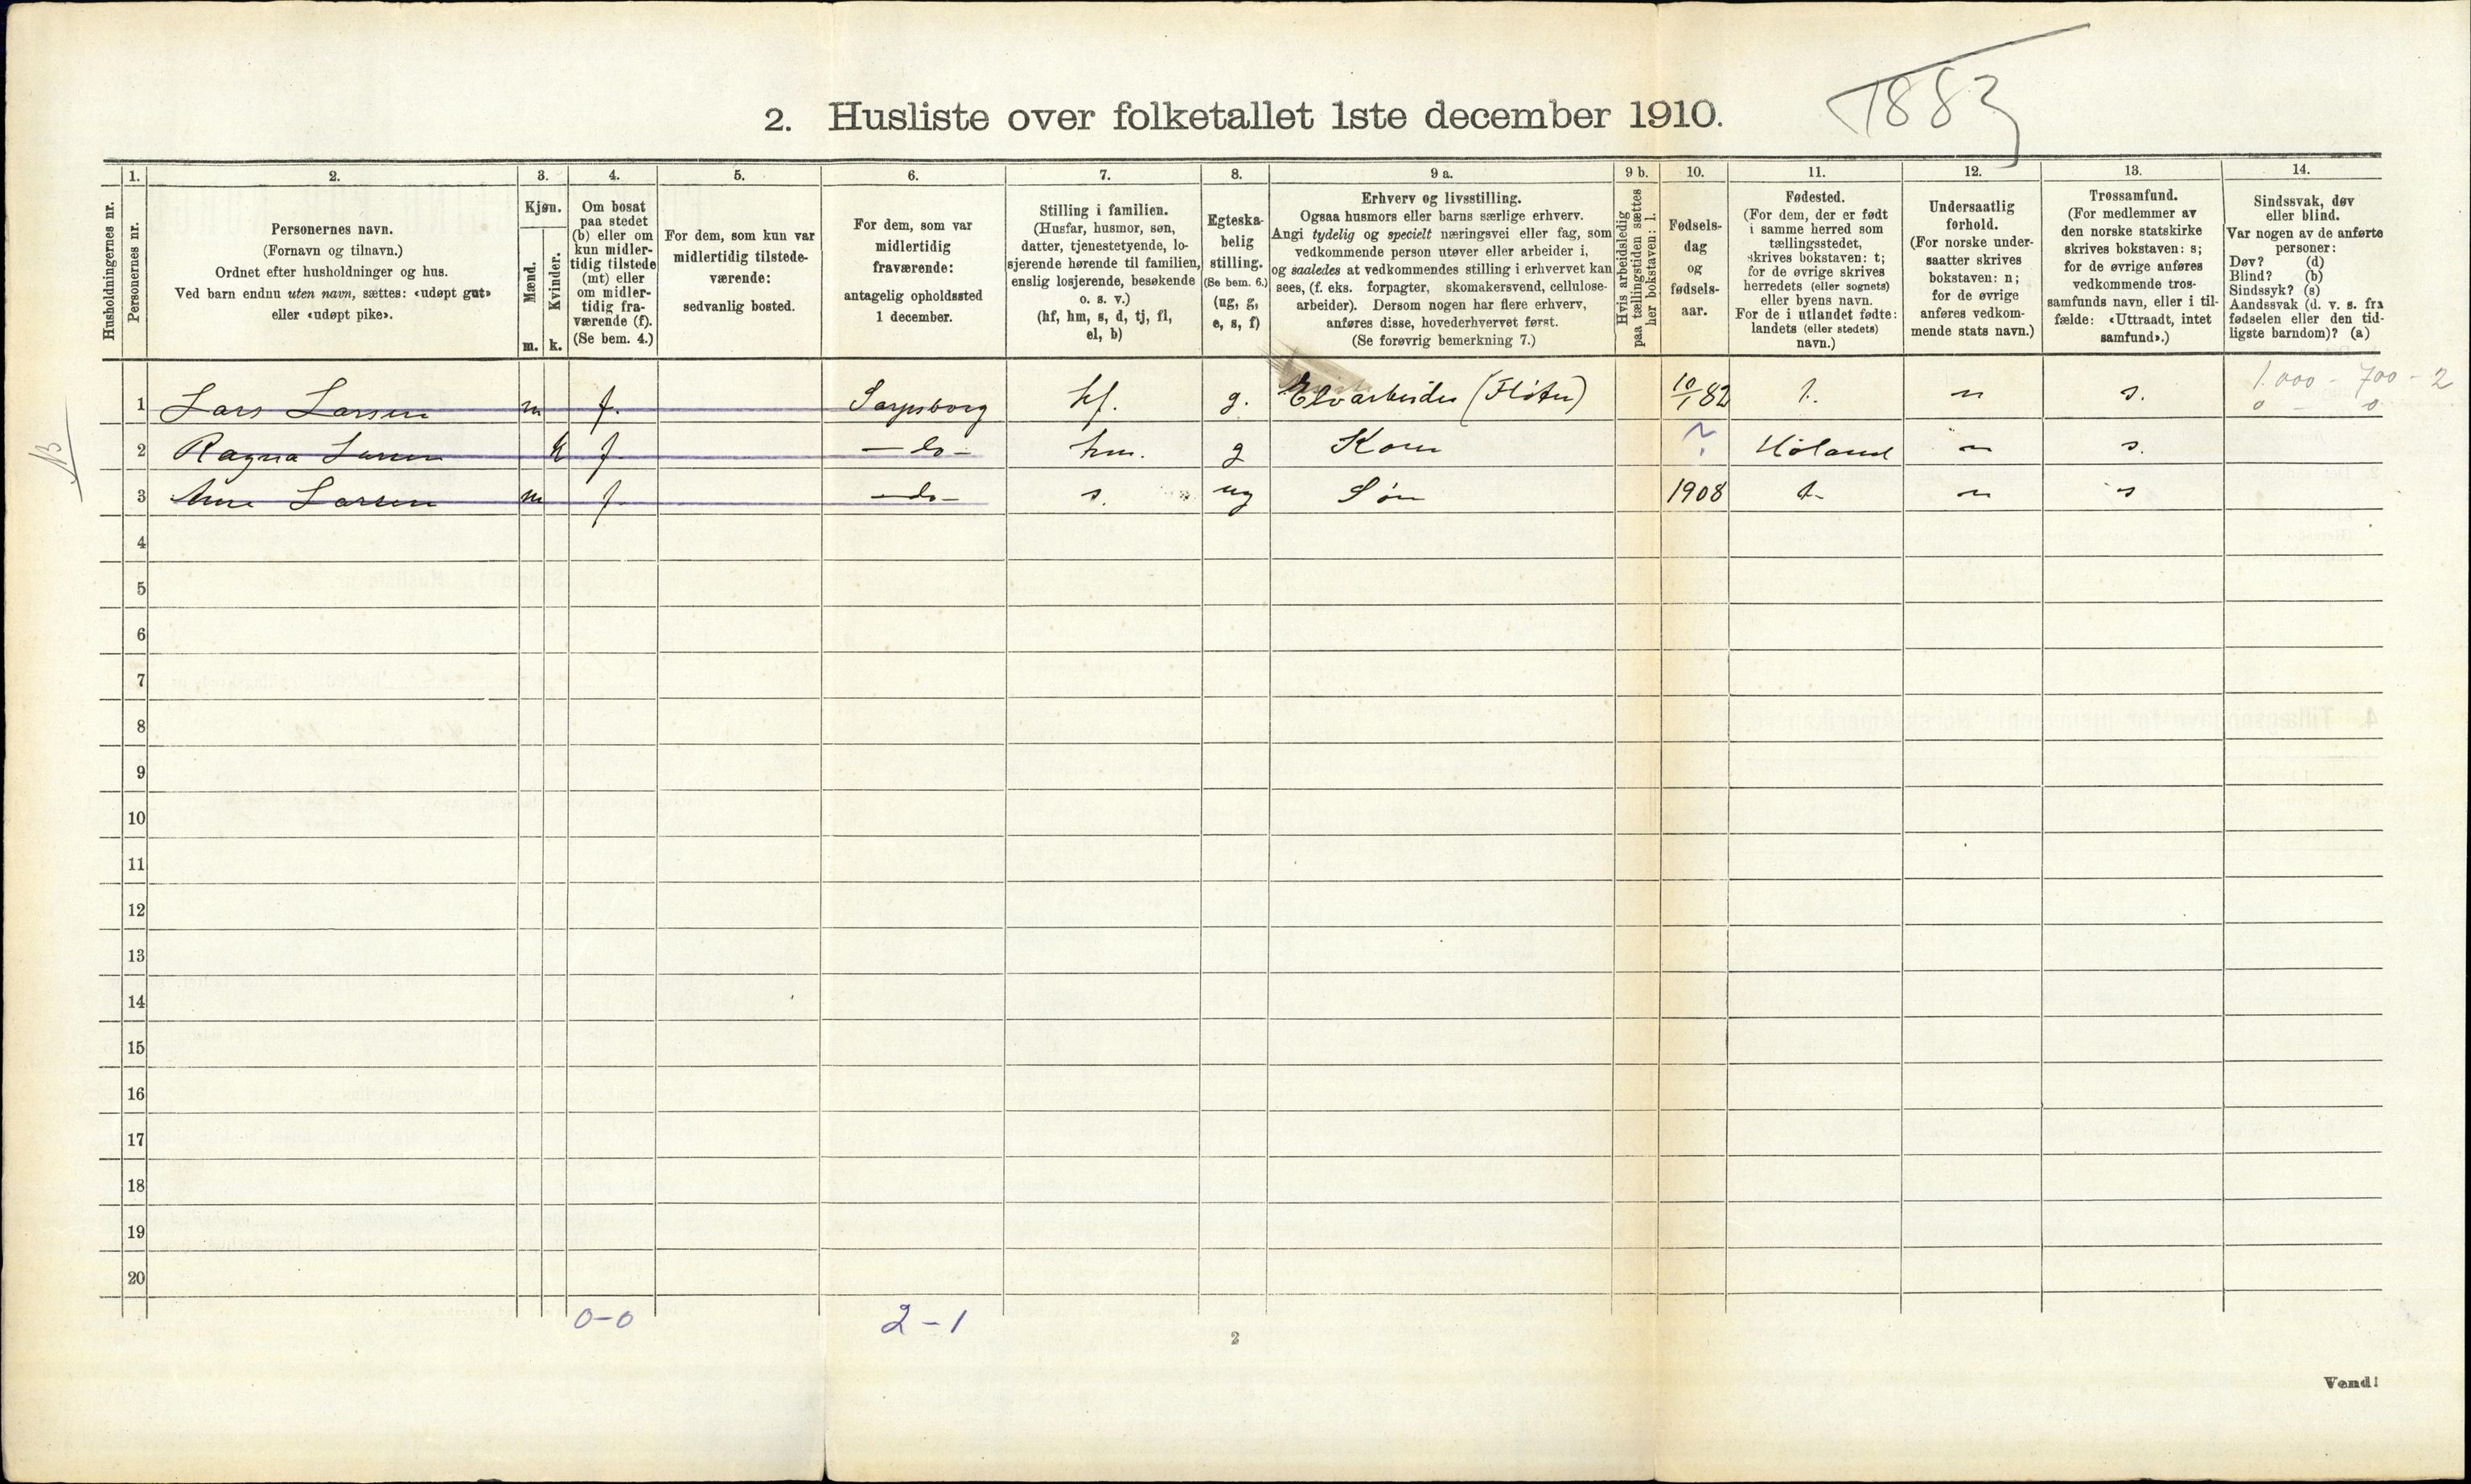 1883
2. Husliste over folketallet 1ste december 1910.
Husholdningernes nr.
1.
Personernes nr.
2.
Personernes navn.
(Fornavn og tilnavn.)
Ordnet efter husholdninger og hus.
Ved barn endnu uten navn, sættes: «udøpt gut»
eller «udøpt pike».
3.
Kjøn.
Mænd.
Kvinder.
m. k.
4.
Om bosat
paa stedet
(b) eller om
kun midler-
tidig tilstede
(mt) eller
om midler-
tidig fra-
værende (f).
(Se bem. 4.)
5.
For dem, som kun var
midlertidig tilstede-
værende:
sedvanlig bosted.
6.
For dem, som var
midlertidig
fraværende:
antagelig opholdssted
1 december.
7.
Stilling i familien.
(Husfar, husmor, søn,
datter, tjenestetyende, lo-
sjerende hørende til familien,
enslig losjerende, besøkende
o. s. v.)
(hf, hm, s, d, tj, fl,
el, b)
8.
Egteska-
belig
stilling.
(Se bem. 6.)
(ug, g,
e, s, f)
9 a.
Erhverv og livsstilling.
Ogsaa husmors eller barns særlige erhverv.
Angi tydelig og specielt næringsvei eller fag, som
vedkommende person utøver eller arbeider i,
og saaledes at vedkommendes stilling i erhvervet kan
sees, (f. eks. forpagter, skomakersvend, cellulose-
arbeider). Dersom nogen har flere erhverv,
anføres disse, hovederhvervet først.
(Se forøvrig bemerkning 7.)
9 b.
Hvis arbeidsledig
paa tællingstiden sættes
her bokstaven: l.
10.
Fødsels-
dag
og
fødsels-
aar.
11.
Fødested.
(For dem, der er født
i samme herred som
tællingsstedet,
skrives bokstaven: t;
for de øvrige skrives
herredets (eller sognets)
eller byens navn.
For de i utlandet fødte:
landets (eller stedets)
navn.)
12.
Undersaatlig
forhold.
(For norske under-
saatter skrives
bokstaven: n;
for de øvrige
anføres vedkom-
mende stats navn.)
13.
Trossamfund.
(For medlemmer av
den norske statskirke
skrives bokstaven: s;
for de øvrige anføres
vedkommende tros-
samfunds navn, eller i til-
fælde: «Uttraadt, intet
samfund».)
14.
Sindssvak, døv
eller blind.
Var nogen av de anførte
personer:
Døv? (d)
Blind? (b)
Sindssyk? (s)
Aandssvak (d. v. s. fra
fødselen eller den tid-
ligste barndom)? (a)
1 Lars Larsen m f. Sarpsborg hf. g. Elvarbeider (Fløter) 10/1 82 t. n s. 1.000 - 700 - 2
0 - 0
2 Ragna Larsen k f - do - hm. g Kone ? Høland n s.
3 Larsen m f - do - s. ug Søn 1908 t. n s
4
5
6
7
8
9
10
11
12
13
14
15
16
17
18
19
20
0-0 2-1
2
Vend!